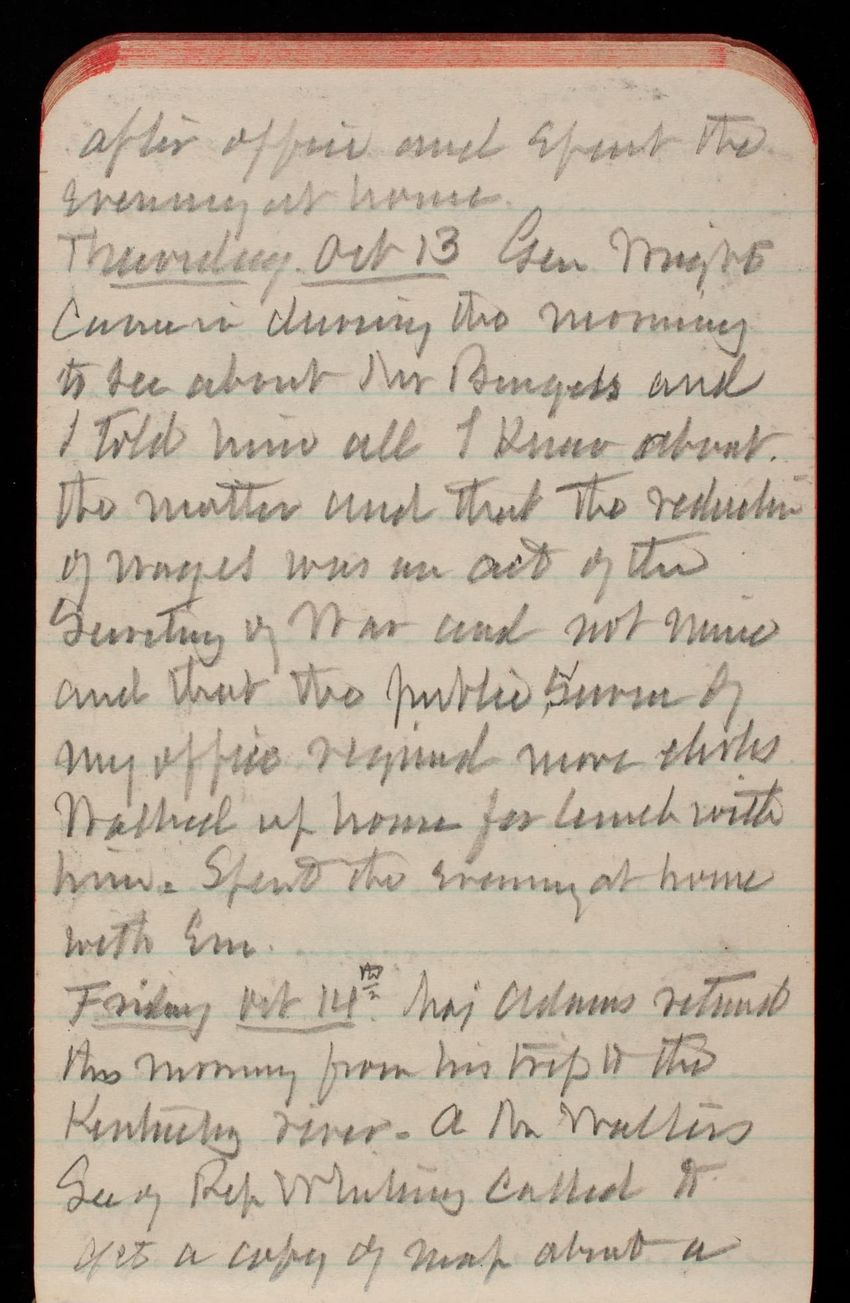 after office and spent the
evening at home.
Thursday. Oct 13 Gen Wright
Came in during the morning
to see about Mr Burgess and
I told him all I know about.
the matter and that the reduction
of wages was an act of the
Secretary of War and not mine
and that the public
my office required more clerks
Walked up home for lunch with
him. Spent the evening at home
with Em.
Friday Oct 14th. Maj Adams returned
this morning from his trip to the
Kentucky river. A Mr Walters
Sec of Rep Whiting called to
get a copy of map about a